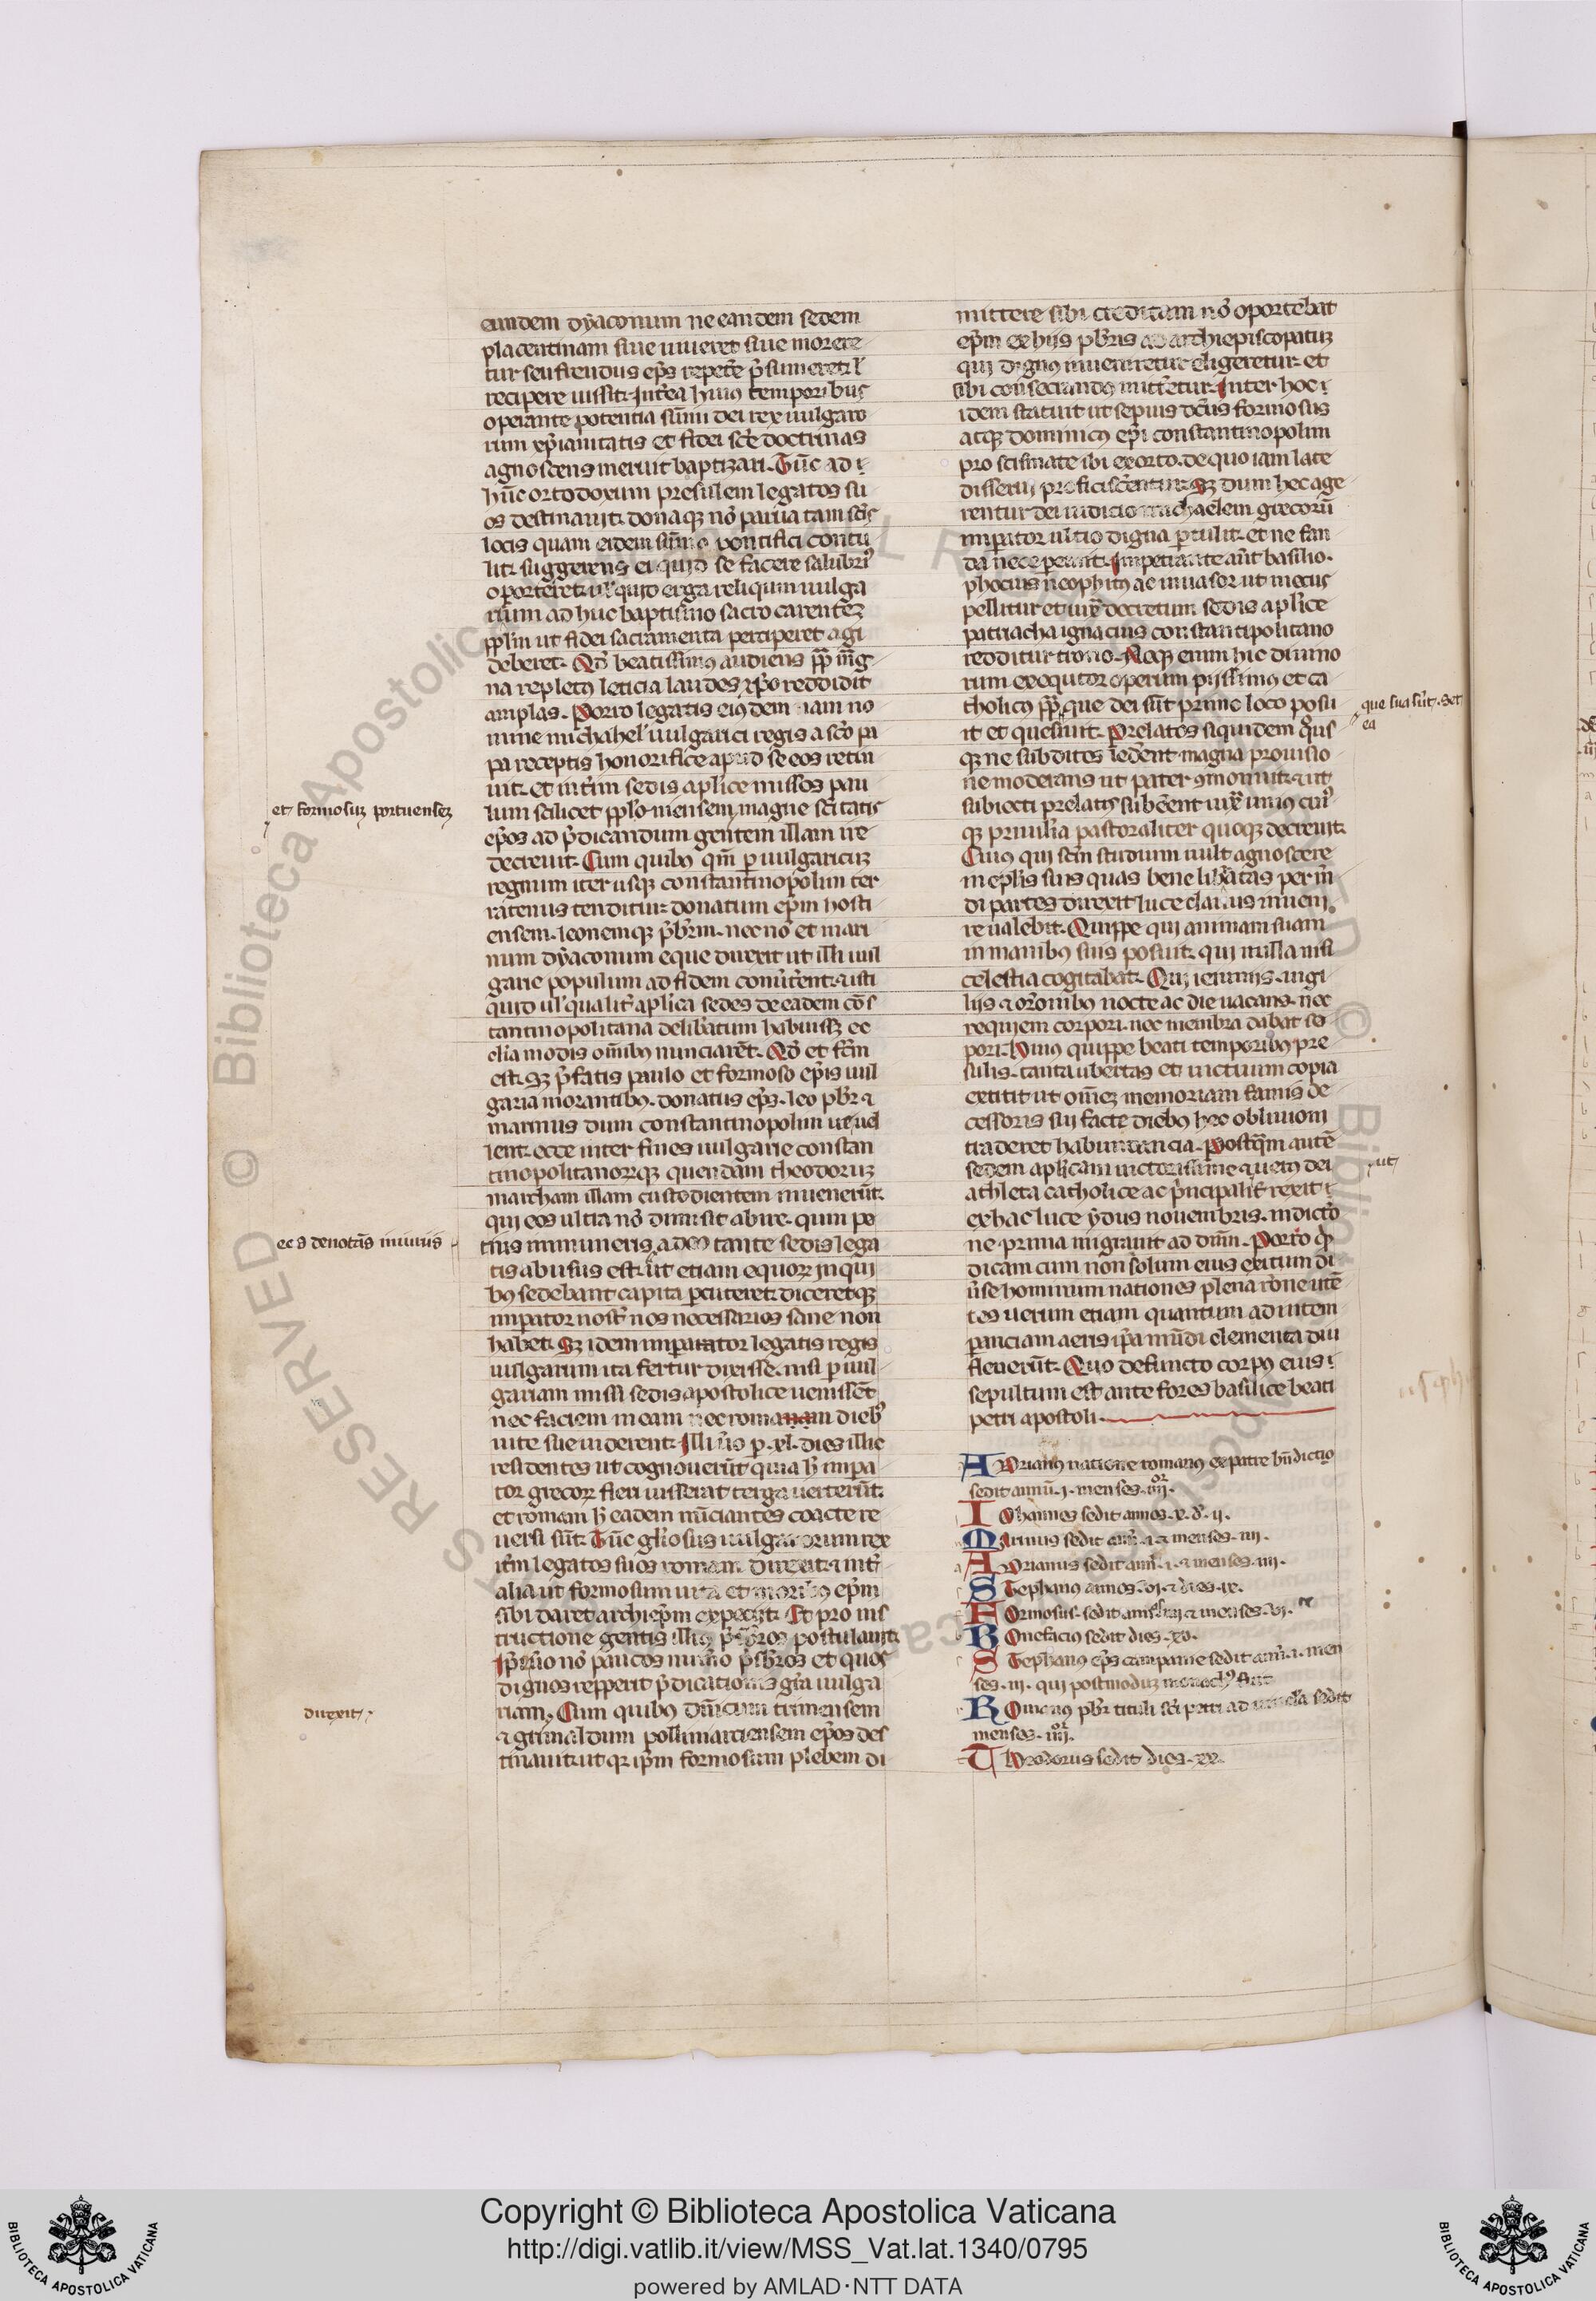 eundem dyaconum ne eandem sedem
placentinam siue uiueret siue morere
tur seu fiendus ep̄s repete p̄sumeret l'
recipere iussit. Int̾ea huius temporibus
operante potentia sūmi dei rex uulgaro
rum xp̄ianitatis et fidei sc̄e doctrinas
agnoscens meruit baptizari. Tūc ad i
hūc ortodoxum presulem legatos su
os destinauit. donaq; nō parua tam sc̄is
locis quam eidem sūmo pontifici contu
lit. suggerens ei quid se facere salubri9
oporteret. ul' quid erga reliquum uulga
rum ad huc baptismo sacro carentez
pplm ut fidei sacramenta perciperet agi
deberet. Qd̄ beatissim9 audiens pp̄ mg̃
na repletus leticia laudes xp̄o reddidit
amplas. Porro legatis ei9dem iam no
mine michahel' uulgarici regis a sc̄o pa
pa receptis honorifice apud se eos retin
uit. et int̾im sedis aplice missos pau
lum scilicet pplo mensem magne sc̄itatis
ep̄os ad p̄dicandum gentem illam ire
decreuit. Cum quib9 qm̄ p uulgaricuz
regnum iter usq; constantinopolim ter
ratenus tenditur. donatum ep̄m hosti
ensem. leonemq; p̄brm. nec nō et mari
num dyaconum eque direxit ut illi uul
garie populum ad fidem conūtent. & isti
quid ul' qualit̾ aplica sedes de eadem cōs
tantinopolitana delib̾atum habuiss; ec
cl'ia modis om̄ib9 nunciarēt. Qd̄ et fc̄m
est. Sz p̄fatis paulo et formoso ep̄is uul
garia morantib9. donatus ep̄s. leo pbr &
marinus dum constantinopolim ueuel
lent. ecce inter fines uulgarie constan
tinopolitanorq; quendam theodoruz
marcham illam custodientem inuenerūt.
qui eos ultra nō dimisit abire. quin po
tius in muneris, adeo tante sedis lega
tis abusus est. ut etiam equorz in qui
b9 sedebant capita p̄cuteret. diceretq;
imperator nost̾ nos necessarios sane non
habet. Sz idem imperatator legatis regis
uulgarum ita fertur dixisse. nisi p uul
gariam missi sedis apostolice uenissēt
nec faciem meam nec romanam dieb9
uite sue uiderent. Illi ūo p .xl. dies illic
residentes ut cognouerūt quia h̄ impa
tor grecorz fieri iusserat terga uerterūt.
et romam h̄ eadem nūciantes coacte re
uersi sūt. Tūc gl'iosus uulgarorum rex
it̾m legatos suos romam direxit. & int̾
alia ut formosum uita et morib9 ep̄m
sibi daret archiep̄m expeciit. Et pro ins
tructione gentis illi9 p̄sb̾ros postulauit.
Ip̄e uero nō paucos num̾o p̄sb̾ros et quos
dignos repperit p̄dicationis gr̄a uulga
riam, Cum quib9 dn̄icum triuensem
& grimaldum polimartiensem ep̄os des
tinauit. ut q̄r ip̄m formosum plebem di
et formosuz portuensez
ec 9 denotās iniuriis
direxit.
mittere sibi creditam nō oportebat
ep̄m ex hijs pbris ad archiepiscopatuz
qui dign9 inueniretur eligeretur. et
sibi consecrandus mitt̾etur. Inter hoc i
idem statuit ut sepius dc̄us formosus
atq; dominic9 ep̄i constantinopolim
pro scismate ibi exorto. de quo iam late
disserui proficiscerentur. Sz dum hec age
rentur dei iudicio michaelem grecorū
imperator ultio digna p̄culit. et ne fan
da nece periit. Imperante aūt basilio.
phocius neophit9 ac inuasor ut mecus
pellitur et iux̄ decretum sedis aplice
patriarcha ignacius constantipolitano
redditur trono. Neq; enim hic diuino
rum exequtor operum pijssimus et ca
tholic9 pp̄ que dei sūt primo loco posu
it et quesiuit. Prelatos siquidem q̄us
q; ne subditos lederent magna prouisio
ne moderans ut pater 9monuit. & ut
subiecti prelatis subēent iux̄ unius cui9
q; priuil'ia pastoraliter quoq; decreuit.
Cuius qui sc̄m studium uult agnoscere
in eplis suis quas bene librātas per m̄
di partes direxit luce clarius inueni.
re ualebit. Quippe qui animam suam
in manib9 suis posuit. qui nulla nisi
celestia cogitabat. Qui ieiuniis. uigi
liis & or̄onib9 nocte ac die uacans. nec
requiem corpori. nec membra dabat so
pori. Huius quippe beati temporib9 pre
sulis. tanta ubertas et uictuum copia
extitit ut om̄ez memoriam famis de
cessoris sui facte dieb9 hec obliuioni
traderet habundancia. Postq̄m autē
sedem aplicam uictoriissime & uerus dei
athleta catholice ac p̄ncipalit̾ rexit i
ex hac luce ydus nouembris. indicto
ne prima migrauit ad dnm̄. Porro q̄d
dicam cum non solum eius exitum di
ūse hominum nationes plena rōne utē
tes uerum etiam quantum ad intem
p̄anciam aeris ip̄a mūdi elementa diu
fleuerūt. Quo defuncto corp9 eius i
sepultum est ante fores basilice beati
petri apostoli.
que sua sūt. set
ea
ut
Adrianus natione romanus ex patre bn̄dicto
sedit annū .j. menses .iiijor.
Iohannes sedit annos .x. d. ij.
Marinus sedit ann̄ .i. & menses .iiij.
Adrianus sedit ann̄ .i. & menses .iiij.
Stephanus annos .vi. & dies .ix.
Formosus. sedit annos iiij & menses .vi.
Bonefacius sedit dies .xv.
Stephanus ep̄s campanie sedit ann̄ .i. men
ses .iij. qui postmoduz monach9 fuit
Romanus pbr tituli sc̄i petri ad uincula sedit
menses .iiijor.
Theodorus sedit dies .xx.
© Biblioteca Apostolica Vaticana ALL RIGHTS RESERVED
Copyright © Biblioteca Apostolica Vaticana
http://digi.vatlib.it/view/MSS_Vat.lat.1340/0795
powered by AMLAD·NTT DATA
BIBLIOTECA APOSTOLICA VATICANA
BIBLIOTECA APOSTOLICA VATICANA